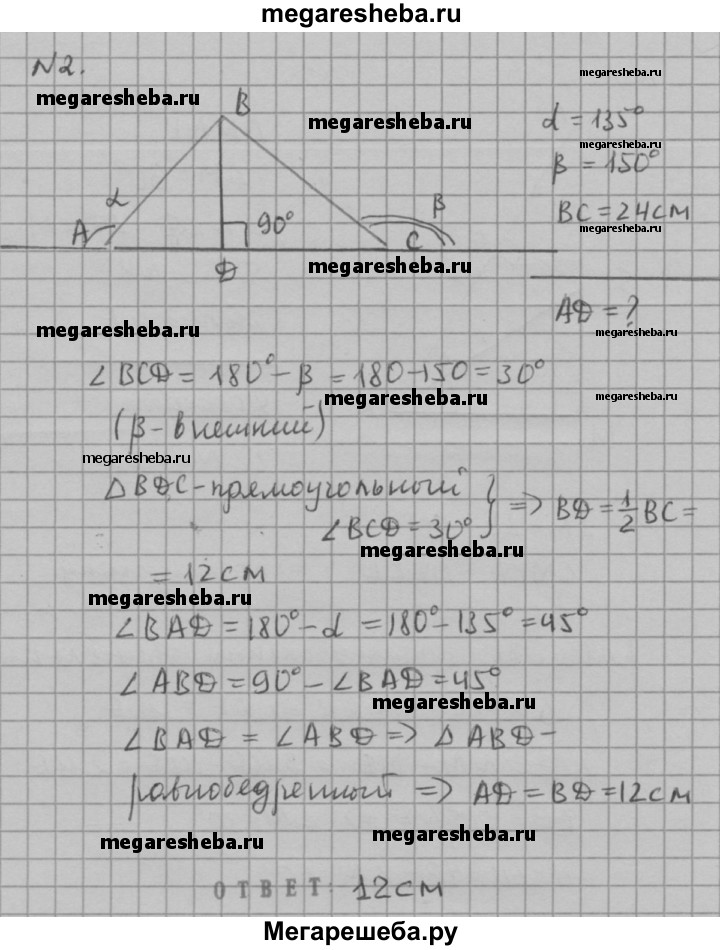 megaresheba.ru
N2.
megaresheba.ru
megaresheba.ru
B
megaresheba.ru
megaresheba.ru
α = 135°
megaresheba.ru
β = 150°
α
β
BC = 24 см
A
90°
C
megaresheba.ru
D
megaresheba.ru
AD = ?
megaresheba.ru
megaresheba.ru
∠ BCD = 180° - β = 180 - 150 = 30°
megaresheba.ru
megaresheba.ru
(β - внешний)
megaresheba.ru
Δ BDC - прямоугольный
∠ BCD = 30° } => BD = 1/2 BC =
megaresheba.ru
= 12 см
megaresheba.ru
∠ BAD = 180° - α = 180° - 135° = 45°
∠ ABD = 90° - ∠ BAD = 45°
megaresheba.ru
∠ BAD = ∠ ABD => Δ ABD -
равнобедренный => AD = BD = 12 см
megaresheba.ru
megaresheba.ru
ОТВЕТ: 12 см
Мегарешеба.ру